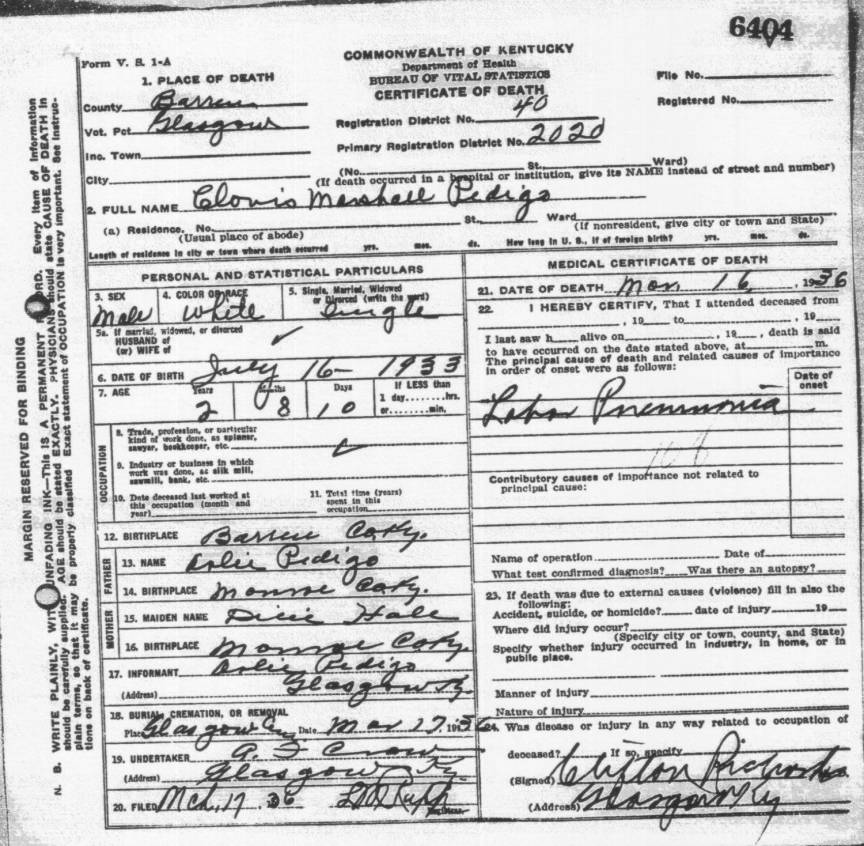 6404
Form V. S. 1-A
COMMONWEALTH OF KENTUCKY
Department of Health
BUREAU OF VITAL STATISTICS
CERTIFICATE OF DEATH
File No.
Registered No.
1. PLACE OF DEATH
County Barren
Vot. Pct Glasgow
Inc. Town
City
Registration District No. 40
Primary Registration District No. 2020
(No. St., Ward)
(If death occurred in a hospital or institution, give its NAME instead of street and number)
2. FULL NAME Clovis Marshall Pedigo
(a) Residence. No. St., Ward
(Usual place of abode) (If nonresident, give city or town and State)
Length of residence in city or town where death occurred yrs. mos. ds. How long in U. S., if of foreign birth? yrs. mos. ds.
PERSONAL AND STATISTICAL PARTICULARS
3. SEX Male
4. COLOR OR RACE White
5. Single, Married, Widowed
or Divorced (write the word)
Single
5a. If married, widowed, or divorced
HUSBAND of
(or) WIFE of
6. DATE OF BIRTH July 16 - 1933
7. AGE Years 2 Months 8 Days 10
If LESS than
1 day........hrs.
or........min.
OCCUPATION
8. Trade, profession, or particular
kind of work done, as spinner,
sawyer, bookkeeper, etc.
9. Industry or business in which
work was done, as silk mill,
sawmill, bank, etc.
10. Date deceased last worked at
this occupation (month and
year)
11. Total time (years)
spent in this
occupation
12. BIRTHPLACE Barren Co Ky.
FATHER
13. NAME Arlie Pedigo
14. BIRTHPLACE Monroe Co Ky.
MOTHER
15. MAIDEN NAME Dicie Hale
16. BIRTHPLACE Monroe Co Ky.
17. INFORMANT Arlie Pedigo
(Address) Glasgow Ky.
18. BURIAL, CREMATION, OR REMOVAL
Place Glasgow Date Mar 17, 1936
19. UNDERTAKER
(Address) Glasgow Ky.
20. FILED Mch, 17 36
Registrar.
MEDICAL CERTIFICATE OF DEATH
21. DATE OF DEATH Mar 16, 1936
22. I HEREBY CERTIFY, That I attended deceased from
, 19 to , 19
I last saw h alive on , 19 , death is said
to have occurred on the date stated above, at m.
The principal cause of death and related causes of importance
in order of onset were as follows:
Date of
onset
Lobar Pneumonia
108
Contributory causes of importance not related to
principal cause:
Name of operation Date of
What test confirmed diagnosis? Was there an autopsy?
23. If death was due to external causes (violence) fill in also the
following:
Accident, suicide, or homicide? date of injury 19
Where did injury occur?
(Specify city or town, county, and State)
Specify whether injury occurred in industry, in home, or in
public place.
Manner of injury
Nature of injury
24. Was disease or injury in any way related to occupation of
deceased? If so, specify
(Signed) Clifton Richards
(Address) Glasgow Ky
MARGIN RESERVED FOR BINDING
N. B. WRITE PLAINLY, WITH UNFADING INK—This IS A PERMANENT RECORD. Every item of information
should be carefully supplied. AGE should be stated EXACTLY. PHYSICIANS should state CAUSE OF DEATH in
plain terms, so that it may be properly classified. Exact statement of OCCUPATION is very important. See instruc-
tions on back of certificate.